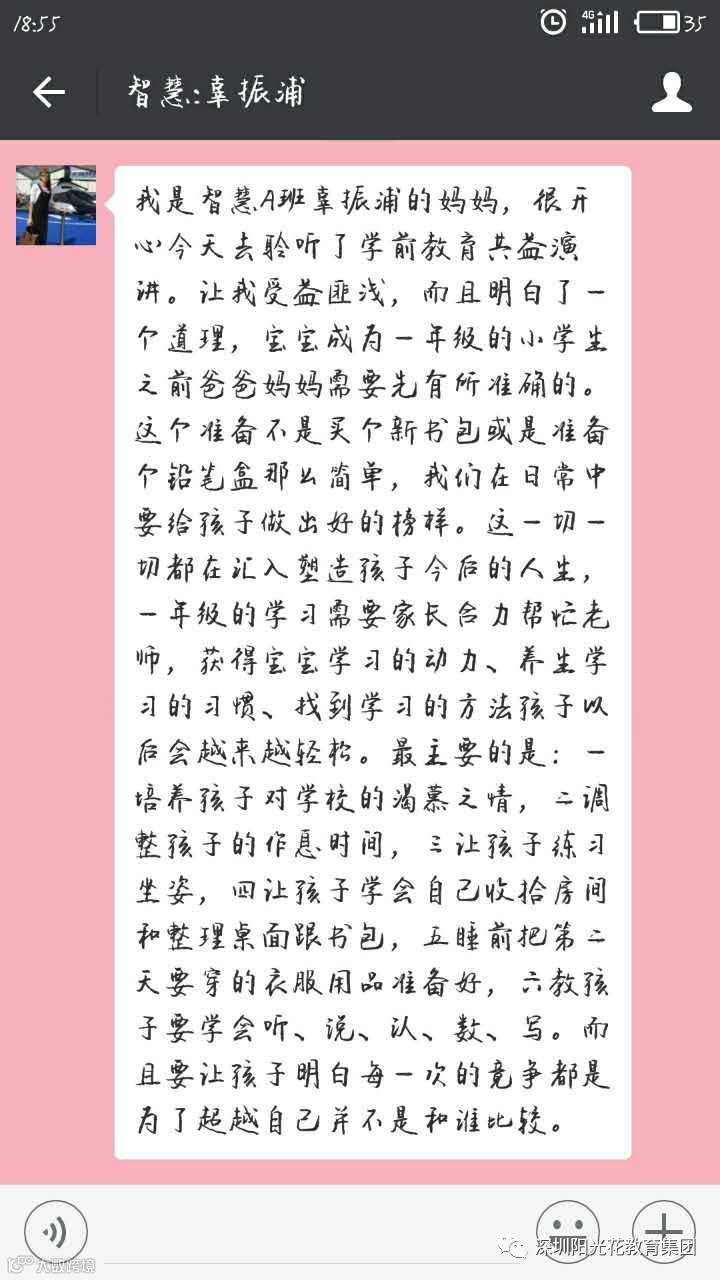 18:55
4G
35
智慧:辜振浦
我是智慧A班辜振浦的妈妈，很开
心今天去聆听了学前教育共益演
讲。让我受益匪浅，而且明白了一
个道理，宝宝成为一年级的小学生
之前爸爸妈妈需要先有所准确的。
这个准备不是买个新书包或是准备
个铅笔盒那么简单，我们在日常中
要给孩子做出好的榜样。这一切一
切都在汇入塑造孩子今后的人生，
一年级的学习需要家长合力帮忙老
师，获得宝宝学习的动力、养生学
习的习惯、找到学习的方法孩子以
后会越来越轻松。最主要的是：一
培养孩子对学校的渴慕之情，二调
整孩子的作息时间，三让孩子练习
坐姿，四让孩子学会自己收拾房间
和整理桌面跟书包，五睡前把第二
天要穿的衣服用品准备好，六教孩
子要学会听、说、认、数、写。而
且要让孩子明白每一次的竞争都是
为了超越自己并不是和谁比较。
深圳阳光花教育集团
大数跨境